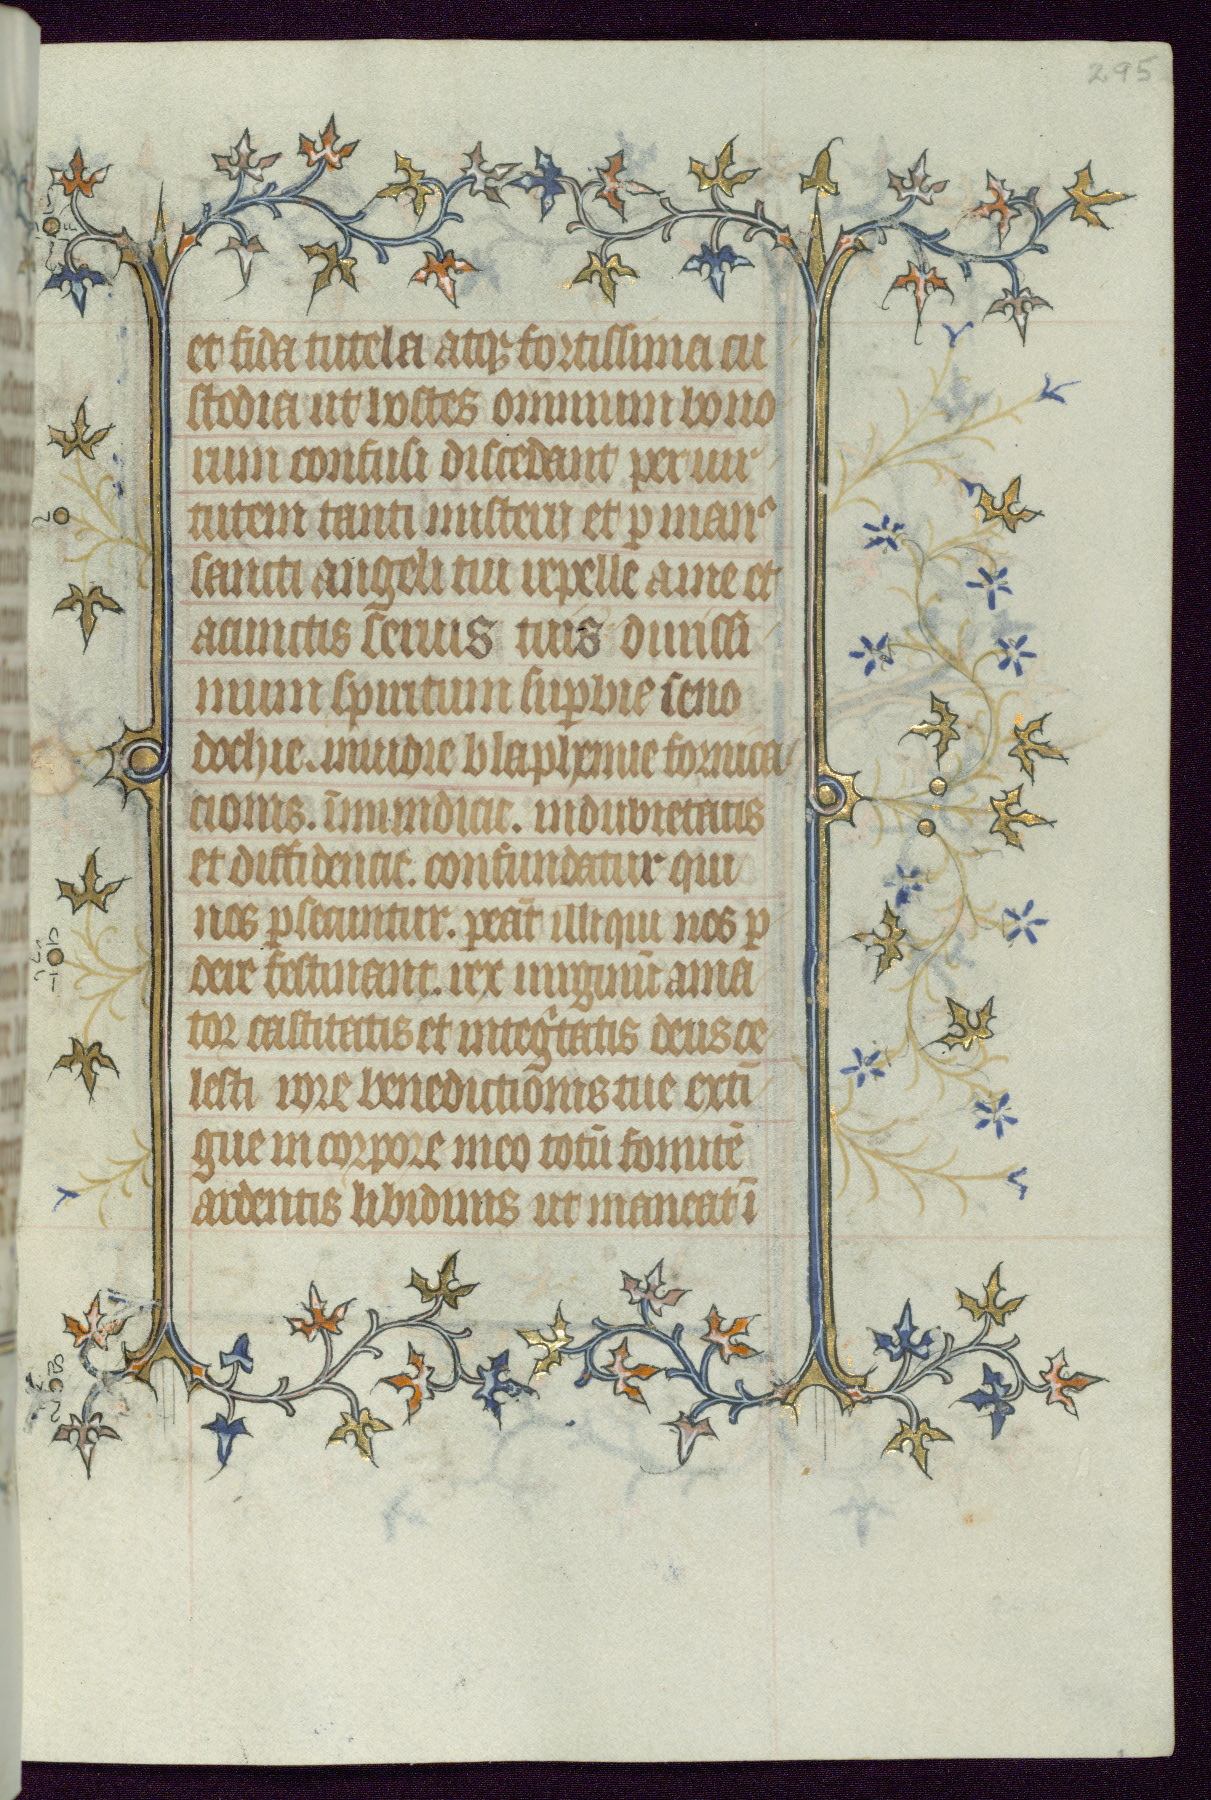 295
et fida tutela atqꝫ fortissima cu
stodia ut hostes omnium bono
rum confusi discedant per uir
tutem tanti misterii et p manꝰ
sancti angeli tui repelle a me et
acunctis seruis tuis durissi
mum spiritum suꝑbie ceno
dochie. inuidie blaphemie fornica
cionis. īmundicie. indubietatis
et diffidencie. confundatur qui
nos ꝑsecuntur. ꝑeāt illi qui nos ꝑ
dere festinant. rex uirginū ama
tor castitatis et integᵃtatis deus ce
lesti rore benedictiōnis tue extī
gue in corpore meo totū fomitē
ardentis libidinis ut maneat ī